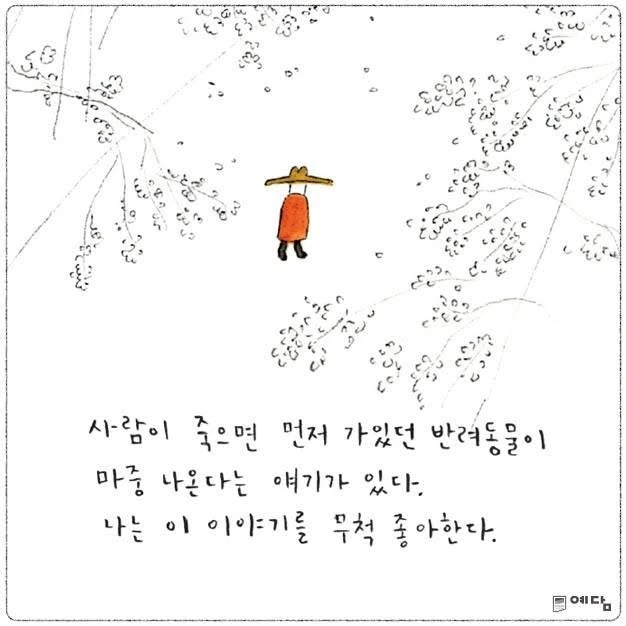 사람이 죽으면 먼저 가있던 반려동물이
마중 나온다는 얘기가 있다.
나는 이 이야기를 무척 좋아한다.
예담